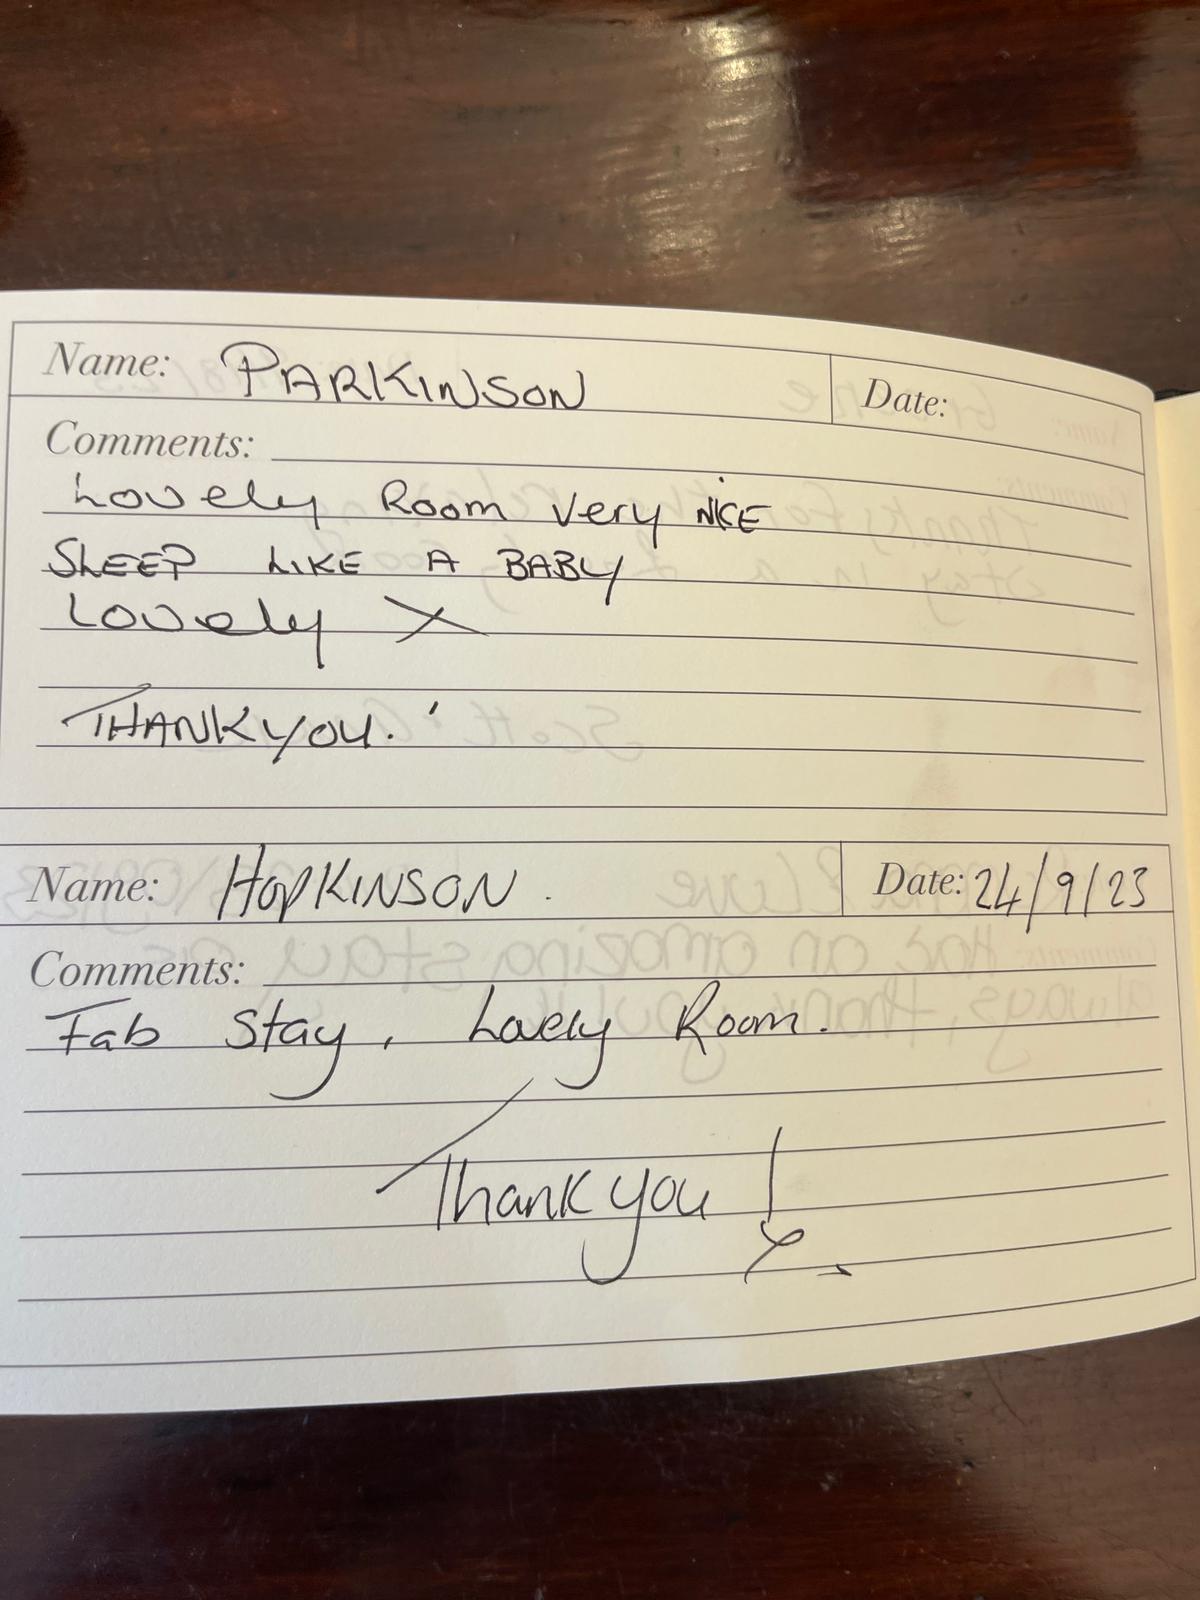 Name: PARKINSON Date:
Comments:
Lovely Room Very NICE
SLEEP LIKE A BABY
Lovely X
THANKYOU.'
Name: HOPKINSON. Date: 24/9/23
Comments:
Fab Stay, Lovely Room.
Thank you !
x